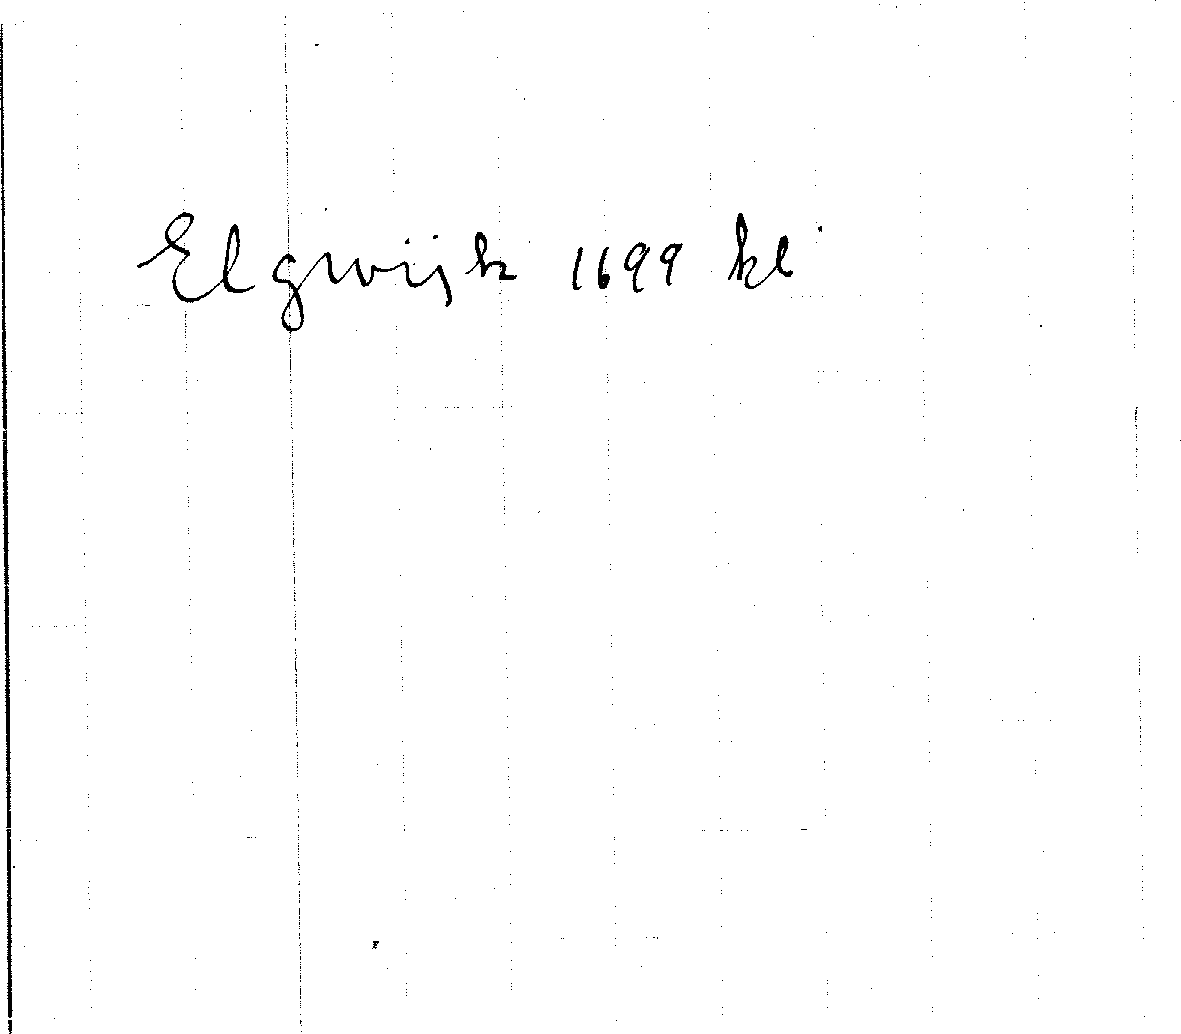 Elgwijk 1699 kl